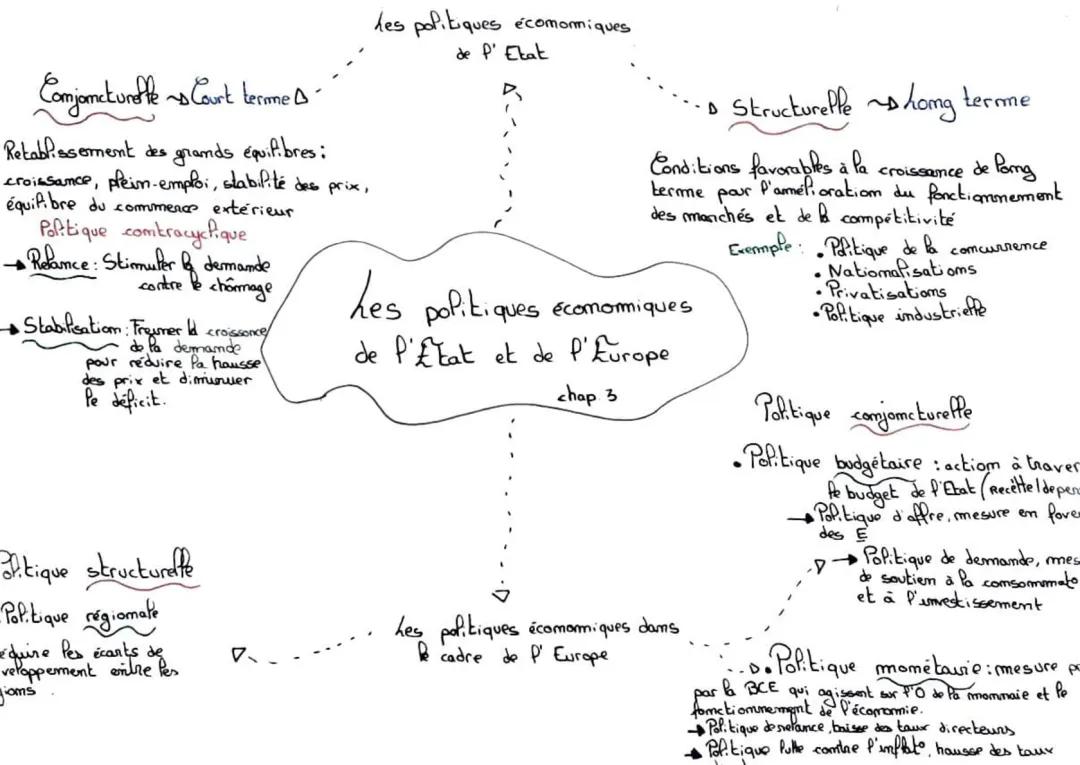 Les politiques économiques
de l'Etat
Conjoncturelle → Court terme
Retablissement des grands équilibres :
croissance, plein-emploi, stabilité des prix,
équilibre du commerce extérieur
Politique contracyclique
→ Relance : Stimuler la demande
contre le chômage
→ Stabilisation : Freiner la croissance
de la demande
pour réduire la hausse
des prix et diminuer
le déficit.
Structurelle → Long terme
Conditions favorables à la croissance de long
terme pour l'amélioration du fonctionnement
des marchés et de la compétitivité
Exemple : • Politique de la concurrence
• Nationalisations
• Privatisations
• Politique industrielle
Les politiques économiques
de l'État et de l'Europe
chap. 3
Politique conjoncturelle
• Politique budgétaire : action à traver
le budget de l'Etat (Recette/depen
→ Politique d'offre, mesure en faveu
des E
→ Politique de demande, mes
de soutien à la consommat°
et à l'investissement
Les politiques économiques dans
le cadre de l'Europe
• Politique monétaire : mesure p
par la BCE qui agissent sur l'O de la monnaie et le
fonctionnement de l'économie.
→ Politique de relance, baisse des taux directeurs
→ Politique lutte contre l'inflat°, hausse des taux
Politique structurelle
Politique régionale
éduire les écarts de
veloppement entre les
gions.